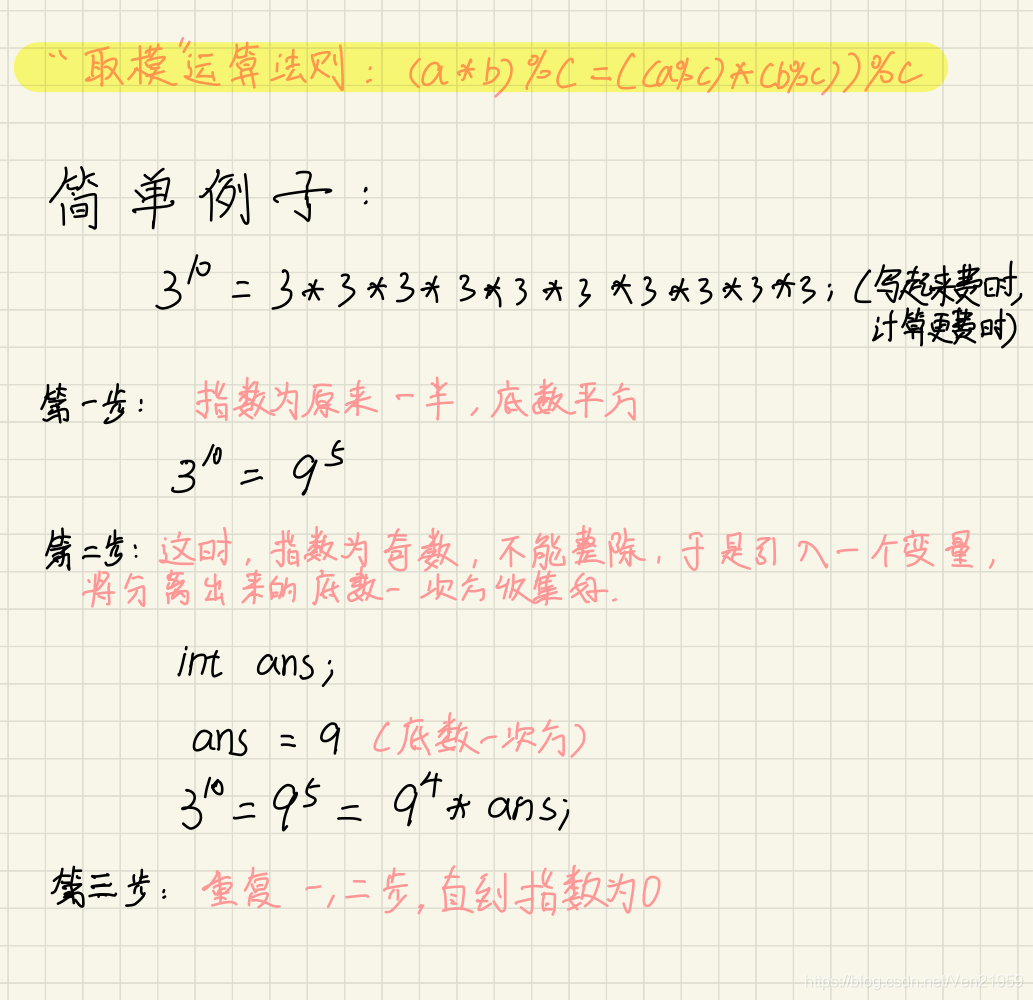 “取模”运算法则：(a*b)%C=((a%c)*(b%c))%C
简单例子：
3^10 = 3*3*3*3*3*3*3*3*3*3; (写起来费时,
计算更费时)
第一步： 指数为原来一半，底数平方
3^10 = 9^5
第二步：这时，指数为奇数，不能整除，于是引入一个变量，
将分离出来的底数一次方收集好.
int ans;
ans = 9 (底数一次方)
3^10 = 9^5 = 9^4 * ans;
第三步：重复一,二步,直到指数为0
https://blog.csdn.net/Ven21959